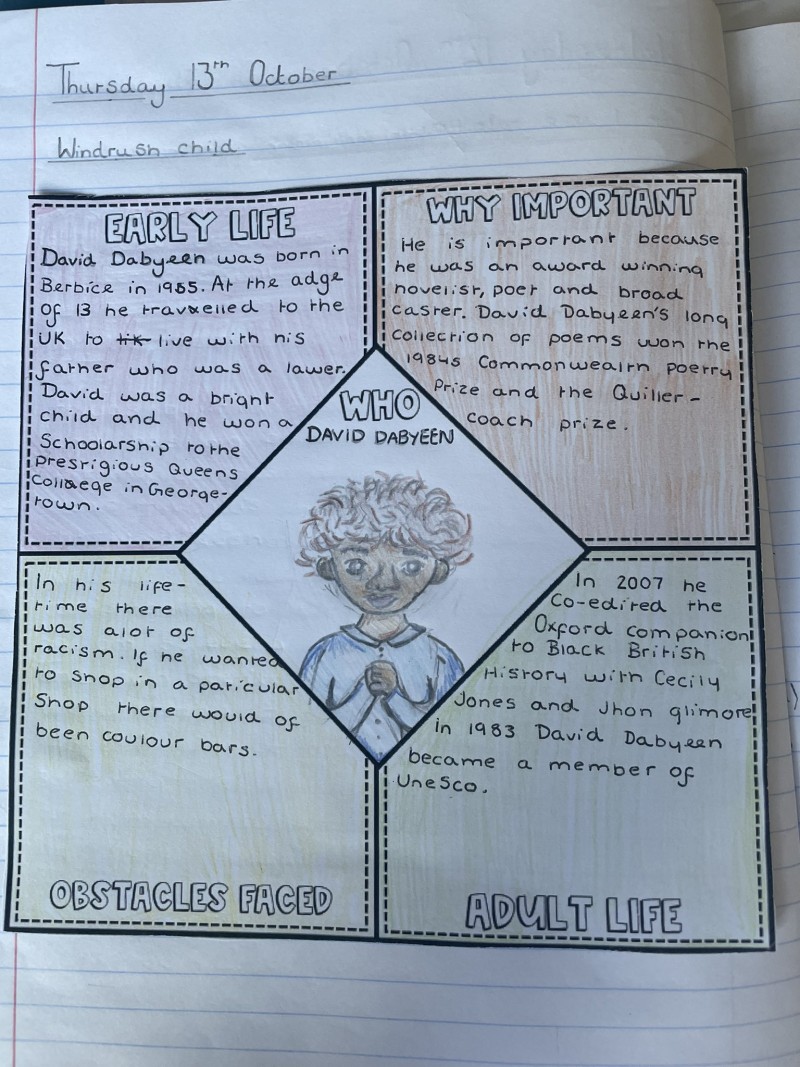 Thursday 13th October
Windrush child
EARLY LIFE
David Dabyeen was born in
Berbice in 1955. At the adge
of 13 he travelled to the
UK to live with his
father who was a lawer.
David was a bright
child and he won a
Schoolarship to the
presrigious Queens
Collaege in George-
town.
WHY IMPORTANT
He is important because
he was an award winning
novelist, poet and broad
caster. David Dabyeen's long
collection of poems won the
1984s Commonwealth poetry
Prize and the Quiller-
coach prize.
WHO
DAVID DABYEEN
In his life-
time there
was alot of
racism. If he wanted
to shop in a paticular
Shop there would of
been coulour bars.
OBSTACLES FACED
In 2007 he
Co-edited the
Oxford companion
to Black British
History with Cecily
Jones and Jhon glimore
in 1983 David Dabyeen
became a member of
Unesco.
ADULT LIFE